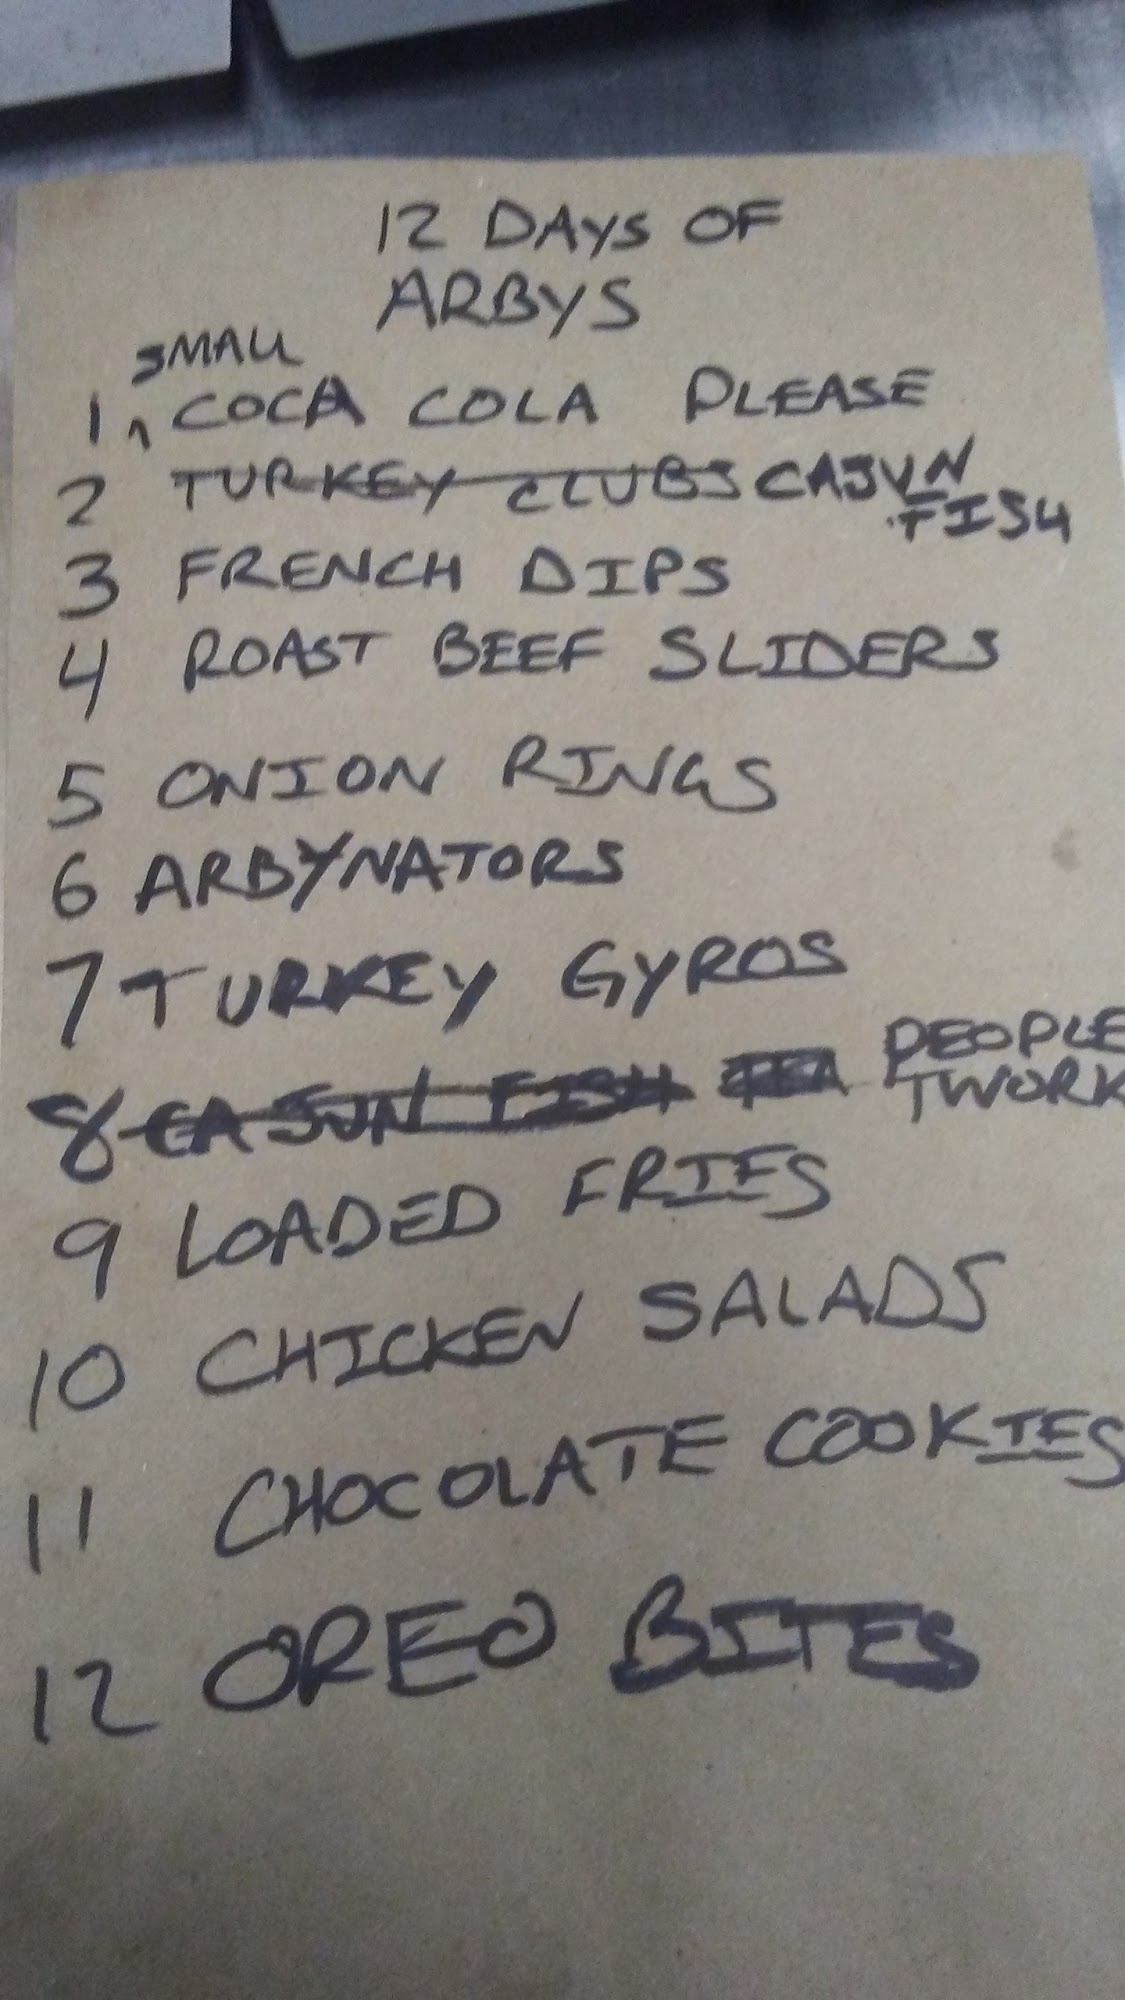 12 DAYS OF
ARBYS
SMALL
1 ^ COCA COLA PLEASE
2 TURKEY CLUBS CAJUN
FISH
3 FRENCH DIPS
4 ROAST BEEF SLIDERS
5 ONION RINGS
6 ARBYNATORS
7 TURKEY GYROS
8 CAJUN FISH PEOPLE
TWORK
9 LOADED FRIES
10 CHICKEN SALADS
11 CHOCOLATE COOKIES
12 OREO BITES